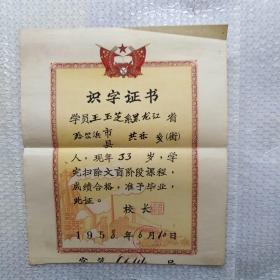 识字证书
学员王玉芝系黑龙江省
哈尔滨市县共乐乡(街)
人，现年33岁，学
完扫除文盲阶段课程，
成绩合格，准予毕业，
此证。
校长
1958年6月10日
字第 号